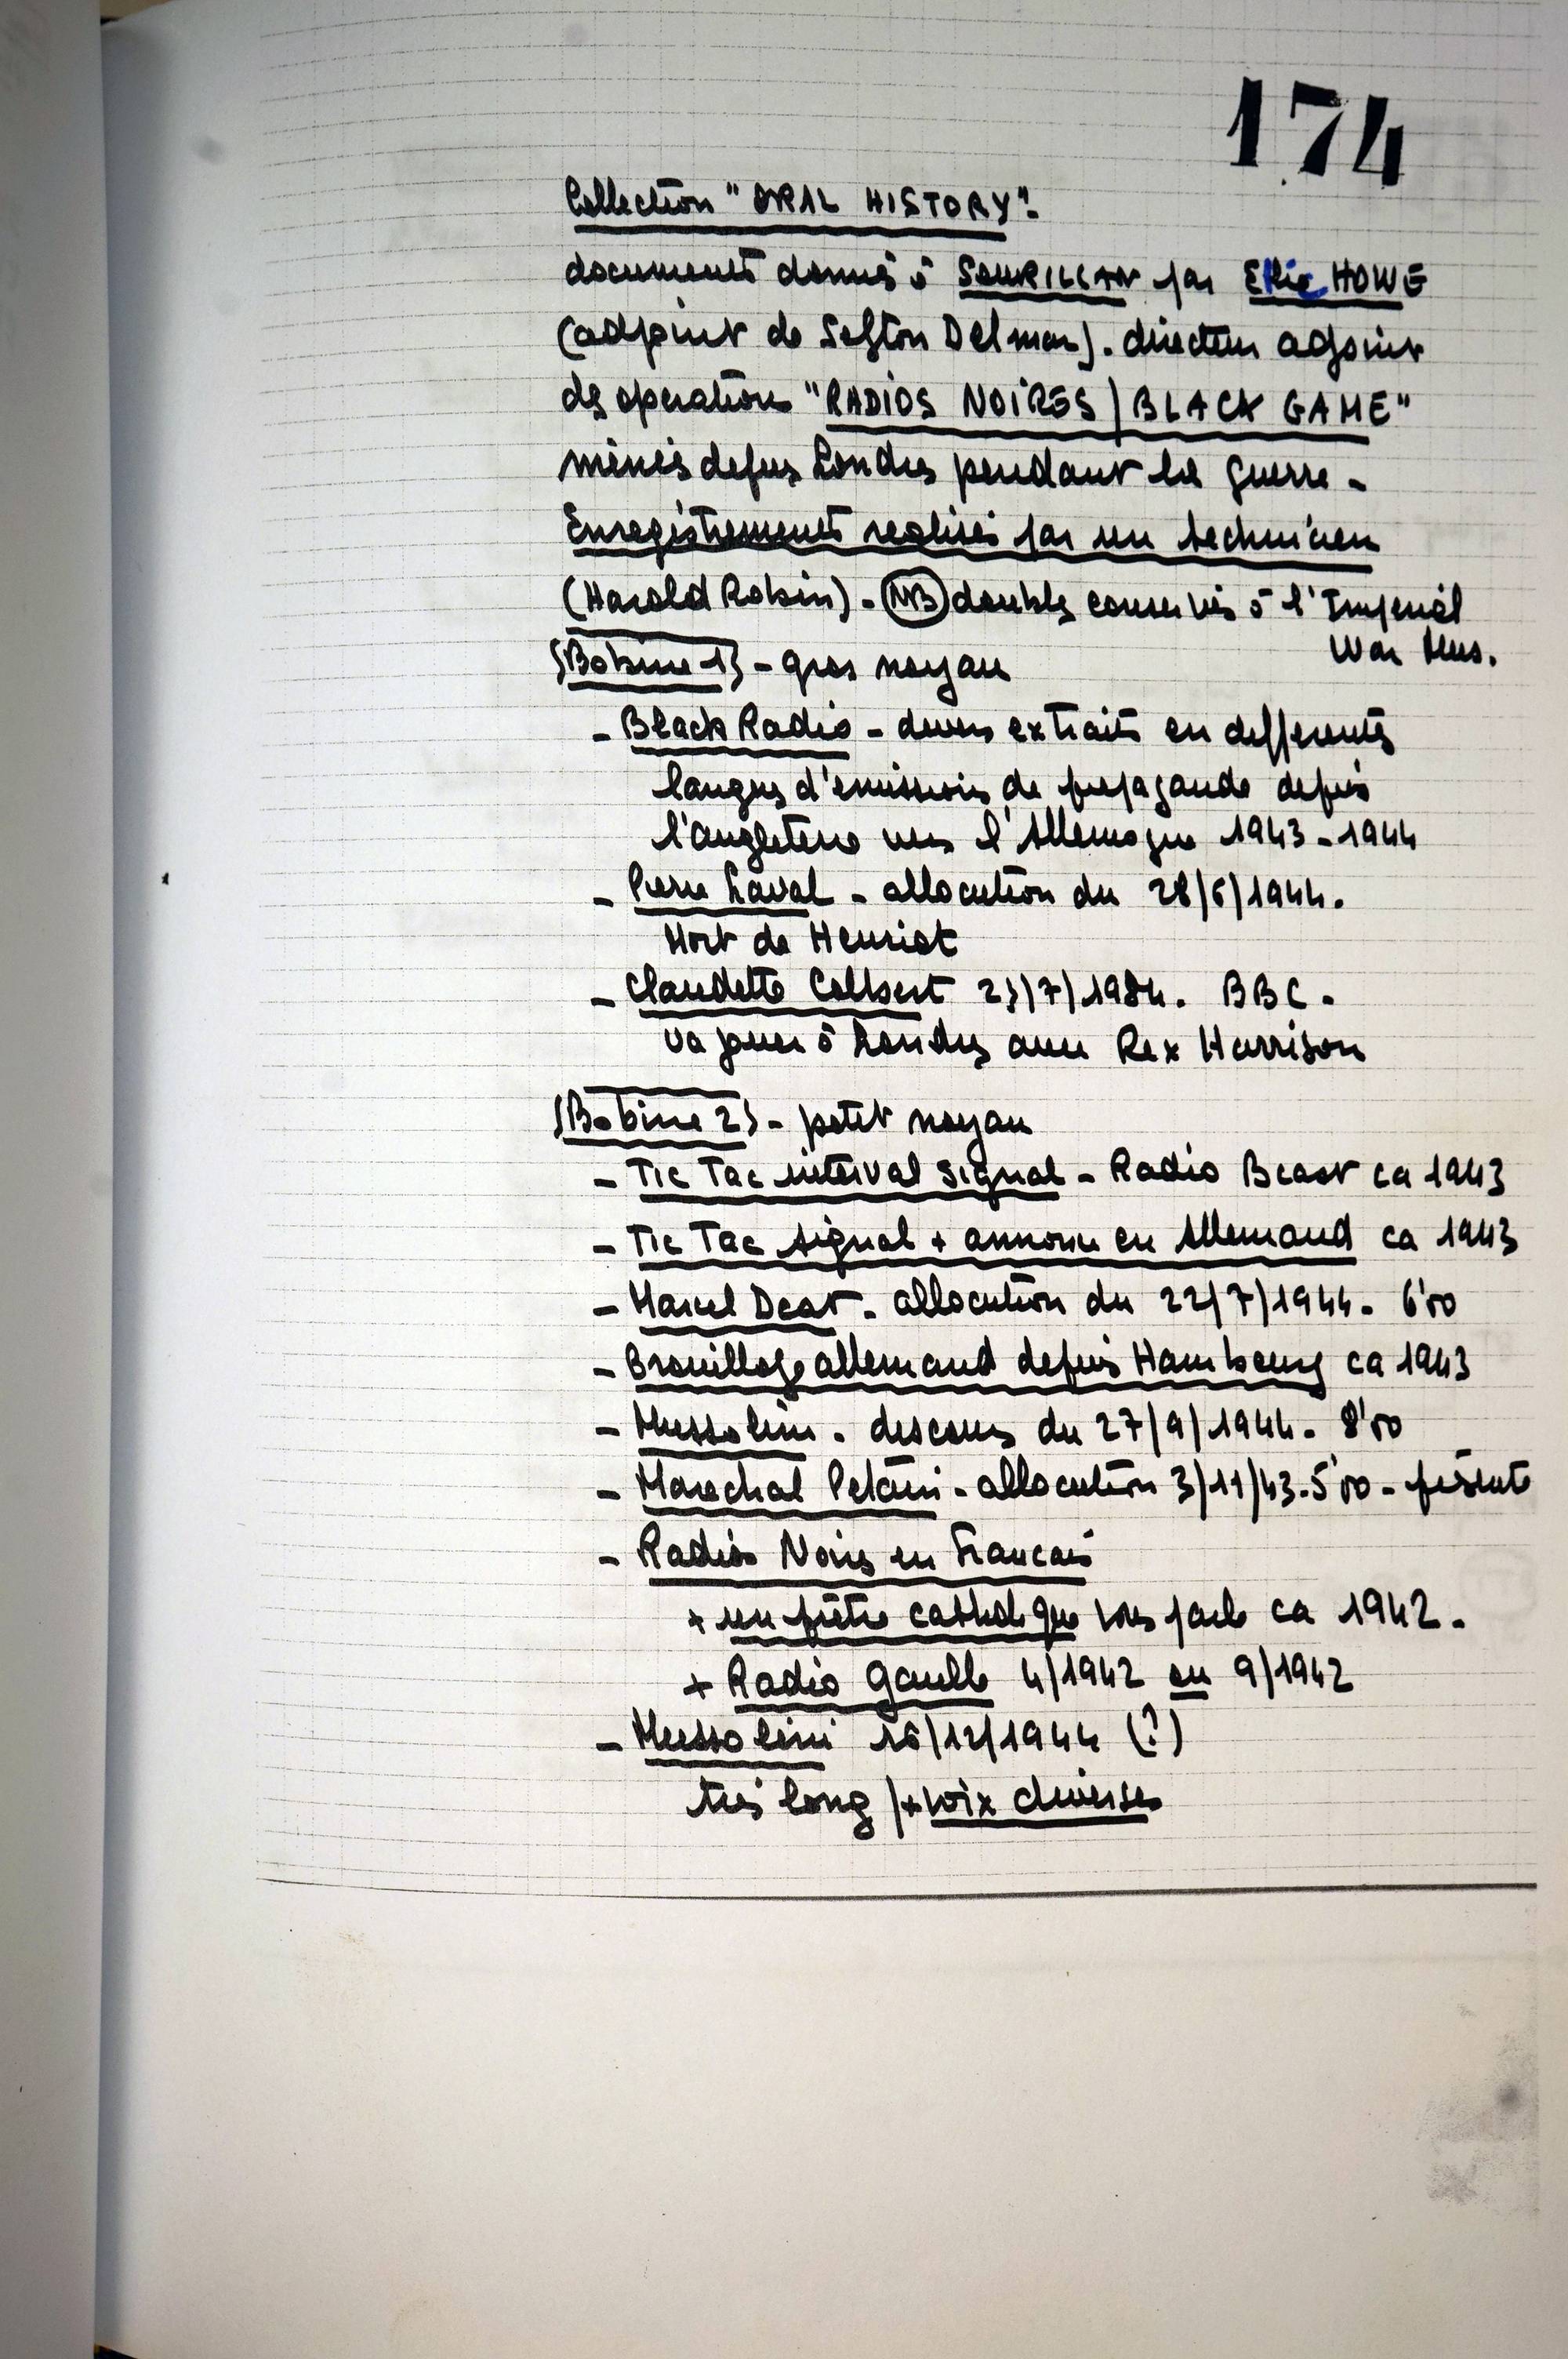 174
Collection "ORAL HISTORY".
documents donnés à SOURILLAN par Ellic HOWE
(adjoint de Sefton Delmer). directeur adjoint
des opérations "RADIOS NOIRES / BLACK GAME"
menés depuis Londres pendant la guerre -
Enregistrements realisés par un technicien
(Harold Robin) - NB doubles conservés à l'Imperial
War Mus.
{Bobine 1} - gros noyau
- Black Radio - divers extraits en differentes
langues d'emissions de propagande depuis
l'angleterre vers l'Allemagne 1943-1944
- Pierre Laval - allocution du 28/6/1944.
Mort de Henriot
- Claudette Colbert 23/7/1984. BBC.
va jouer à Londres avec Rex Harrison
{Bobine 2} - petit noyau
- Tic Tac interval signal - Radio Bcast ca 1943
- Tic Tac signal + annonce en Allemand ca 1943
- Marcel Deat. allocution du 22/7/1944. 6'00
- Brouillage allemand depuis Hambourg ca 1943
- Mussolini. discours du 27/9/1944. 8'00
- Marechal Petain - allocution 3/11/43. 5'00 -
- Radios Noires en Francais
+ un prêtre catholique vous parle ca 1942.
+ Radio Gaulle 4/1942 ou 9/1942
- Mussolini 16/12/1944 (?)
très long /+ voix diverses